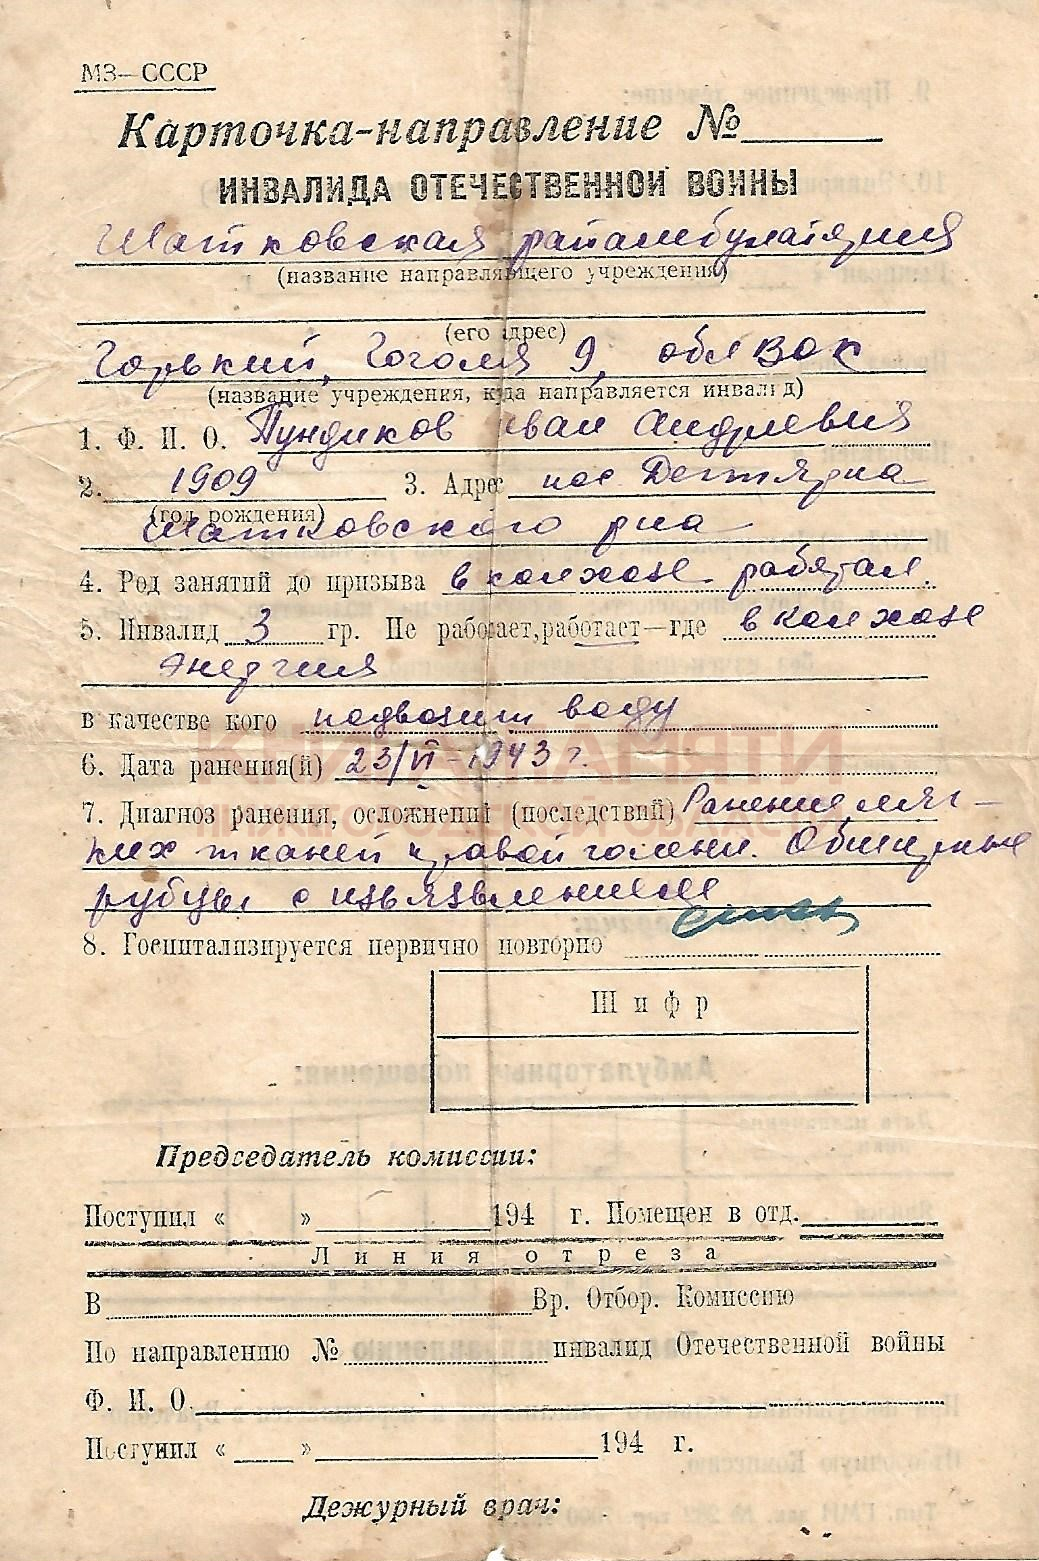 МЗ—СССР
Карточка-направление №
ИНВАЛИДА ОТЕЧЕСТВЕННОЙ ВОЙНЫ
Шатковская райамбулатория
(название направляющего учреждения)
(его адрес)
Горький, Гоголя 9, обл ВОК
(название учреждения, куда направляется инвалид)
1. Ф. И. О. Пундиков Иван Андреевич
2. 1909 3. Адрес пос. Дегтярка
(год рождения)
Шатковского р-на
4. Род занятий до призыва в колхозе работал.
5. Инвалид 3 гр. Не работает, работает—где в колхозе
Энергия
в качестве кого подвозит воду
КНИГА ПАМЯТИ
6. Дата ранения(й) 23/VI-1943 г.
НИЖЕГОРОДСКОЙ ОБЛАСТИ
7. Диагноз ранения, осложнений (последствий) Ранение мяг-
ких тканей правой голени. Обширные
рубцы с изъязвлением
8. Госпитализируется первично повторно
Шифр
Председатель комиссии:
Поступил « » 194 г. Помещен в отд.
Линия отреза
В Вр. Отбор. Комиссию
По направлению № инвалид Отечественной войны
Ф. И. О.
Поступил « » 194 г.
Дежурный врач: